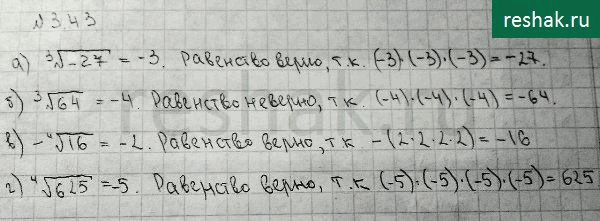 reshak.ru
№3.43
а) ³√-27 = -3. Равенство верно, т.к. (-3)·(-3)·(-3) = -27.
б) ³√64 = -4. Равенство неверно, т.к. (-4)·(-4)·(-4) = -64.
в) -⁴√16 = -2. Равенство верно, т.к -(2·2·2·2) = -16
г) ⁴√625 = -5. Равенство верно, т.к (-5)·(-5)·(-5)·(-5) = 625